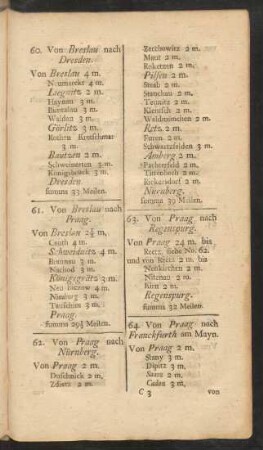 60. Von Breslau nach
Dresden.
Von Breslau 4 m.
Neumarckt 4 m.
Liegnitz 2 m.
Haynau 3 m.
Buntzlau 3 m.
Walden 3 m.
Görlitz 3 m.
Rothen Kretschmar
3 m.
Bautzen 2 m.
Schweinerten 3 m.
Königsbrück 3 m.
Dresden
summa 33 Meilen.
61. Von Breslau nach
Praag.
Von Breslau 2½ m.
Canth 4 m.
Schweidnitz 4 m.
Braunau 3 m.
Nachod 3 m.
Königsgrätz 3 m.
Neu 4 m.
Nimburg 3 m.
3 m.
Praag.
summa 29½ Meilen.
62. Von Praag nach
Nürnberg.
Von Praag 2 m.
Duschnick 2 m.
Zditz 2 m.
2 m.
Maut 2 m.
Rokezan 2 m.
Pilsen 2 m.
Staab 2 m.
Stanckau 2 m.
Teunitz 2 m.
Klentsch 2 m.
Waldmünchen 2 m.
Retz 2 m.
2 m.
Schwartzfelden 3 m.
Amberg 2 m.
2 m.
2 m.
2 m.
Nürnberg.
summa 39 Meilen.
63. Von Praag nach
Regenspurg.
Von Praag 24 m. bis
Retz, siehe No. 62.
und von Retz 2 m. bis
Neukirchen 2 m.
Nitenau 2 m.
2 m.
Regenspurg.
summa 32 Meilen.
64. Von Praag nach
Franckfurth am Mayn.
Von Praag 2 m.
Slany 3 m.
3 m.
Saatz 2 m.
Cadan 3 m.
C 3 von